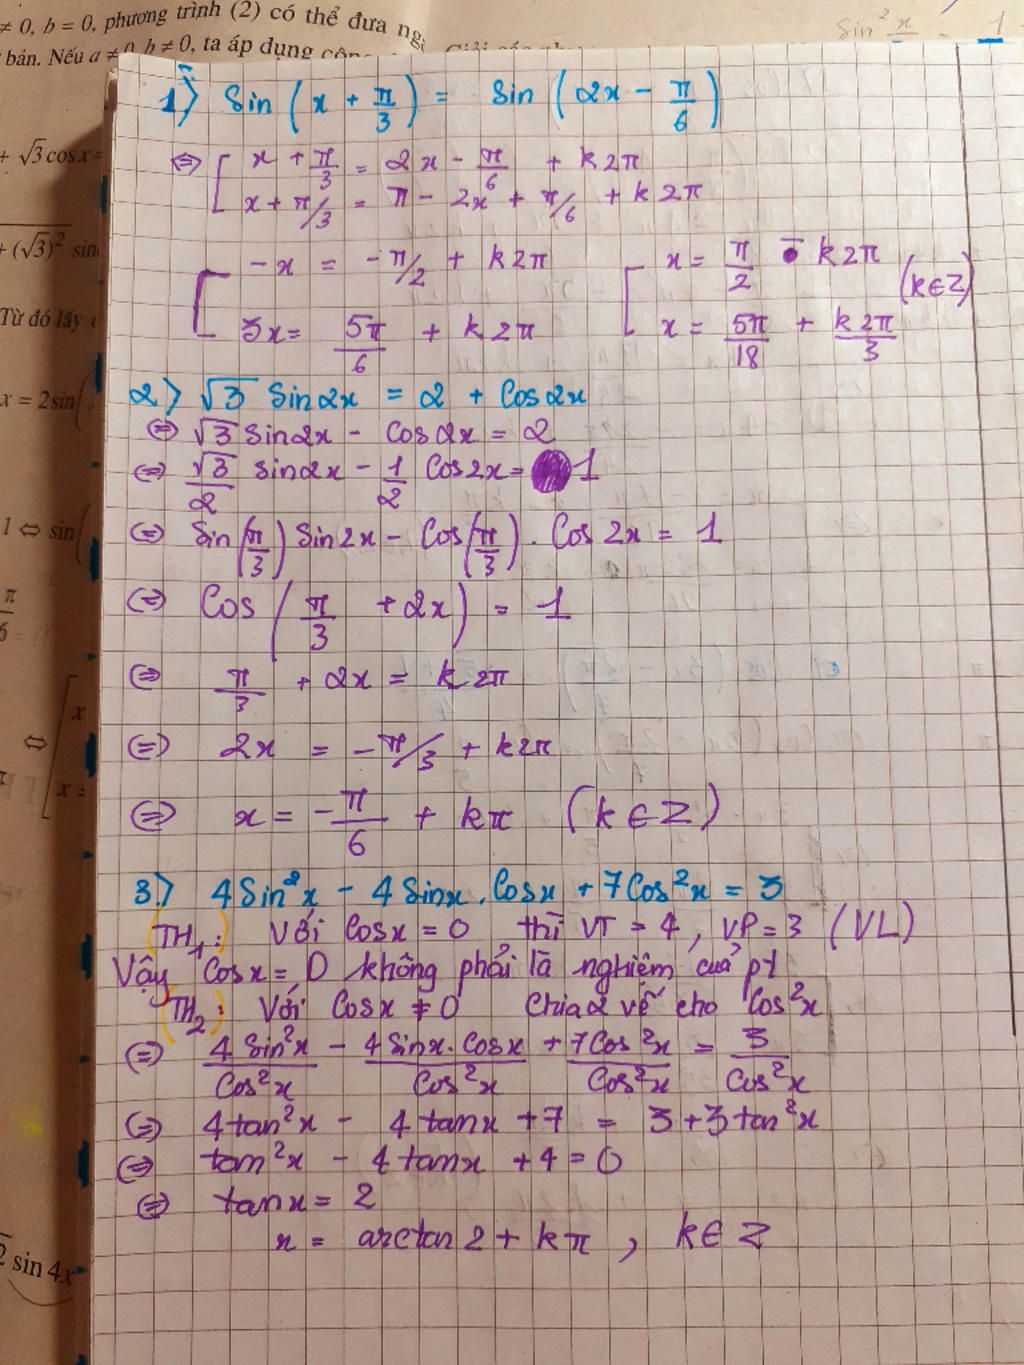 ≠ 0, b = 0, phương trình (2) có thể đưa
bản. Nếu a ≠ 0, b ≠ 0, ta áp dụng
sin² x
1
+ √3 cos x =
+ (√3)² sin
Từ đó lấy
x = 2sin(
1 ⇔ sin(
π/6
⇔ [ x
x =
sin 4x
1) Sin(x + π/3) = sin(2x − π/6)
⇔ [ x + π/3 = 2x − π/6 + k2π
x + π/3 = π − 2x + π/6 + k2π
[ −x = −π/2 + k2π [ x = π/2 − k2π
(k∈Z)
3x = 5π/6 + k2π x = 5π/18 + k2π/3
2) √3 Sin2x = 2 + Cos2x
⇔ √3 Sin2x − Cos2x = 2
⇔ √3/2 sin2x − 1/2 Cos2x = 1
⇔ Sin(π/3) Sin2x − Cos(π/3) . Cos 2x = 1
⇔ Cos(π/3 + 2x) = 1
⇔ π/3 + 2x = k2π
⇔ 2x = −π/3 + k2π
⇔ x = −π/6 + kπ (k∈Z)
3) 4Sin²x − 4Sinx.Cosx + 7Cos²x = 3
TH₁: Với Cosx = 0 thì VT = 4, VP = 3 (VL)
Vậy Cosx = 0 không phải là nghiệm của pt
TH₂: Với Cosx ≠ 0 Chia 2 vế cho Cos²x
⇔ 4Sin²x/Cos²x − 4Sinx.Cosx/Cos²x + 7Cos²x/Cos²x = 3/Cos²x
⇔ 4tan²x − 4tanx + 7 = 3 + 3tan²x
⇔ tan²x − 4tanx + 4 = 0
⇔ tanx = 2
x = arctan2 + kπ , k∈Z